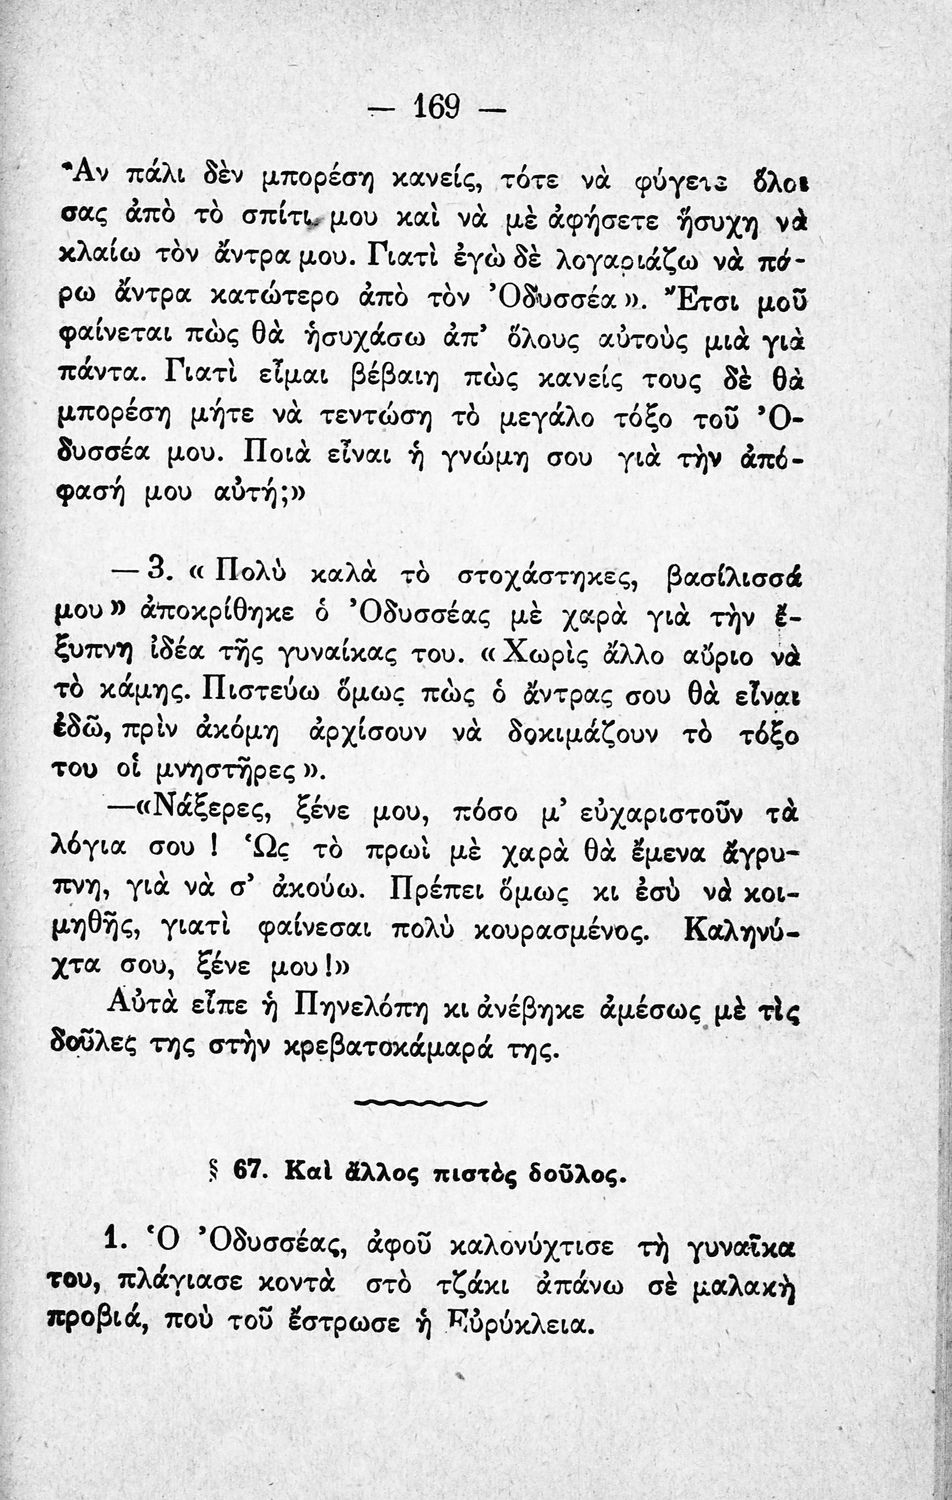 — 169 —
Ἂν πάλι δὲν μπορέση κανείς, τότε νὰ φύγετε ὅλοι
σας ἀπὸ τὸ σπίτι μου καὶ νὰ μὲ ἀφήσετε ἥσυχη νὰ
κλαίω τὸν ἄντρα μου. Γιατὶ ἐγὼ δὲ λογαριάζω νὰ πά-
ρω ἄντρα κατώτερο ἀπὸ τὸν Ὀδυσσέα». Ἔτσι μοῦ
φαίνεται πὼς θὰ ἡσυχάσω ἀπ’ ὅλους αὐτοὺς μιὰ γιὰ
πάντα. Γιατὶ εἶμαι βέβαιη πὼς κανείς τους δὲ θὰ
μπορέση μήτε νὰ τεντώση τὸ μεγάλο τόξο τοῦ Ὀ-
δυσσέα μου. Ποιὰ εἶναι ἡ γνώμη σου γιὰ τὴν ἀπό-
φασή μου αὐτή;»
— 3. « Πολὺ καλὰ τὸ στοχάστηκες, βασίλισσά
μου» ἀποκρίθηκε ὁ Ὀδυσσέας μὲ χαρὰ γιὰ τὴν ἔ-
ξυπνη ἰδέα τῆς γυναίκας του. « Χωρὶς ἄλλο αὔριο νὰ
τὸ κάμης. Πιστεύω ὅμως πὼς ὁ ἄντρας σου θὰ εἶναι
ἐδῶ, πρὶν ἀκόμη ἀρχίσουν νὰ δοκιμάζουν τὸ τόξο
του οἱ μνηστῆρες ».
—«Νάξερες, ξένε μου, πόσο μ’ εὐχαριστοῦν τὰ
λόγια σου ! Ὡς τὸ πρωὶ μὲ χαρὰ θὰ ἔμενα ἄγρυ-
πνη, γιὰ νὰ σ’ ἀκούω. Πρέπει ὅμως κι ἐσὺ νὰ κοι-
μηθῆς, γιατὶ φαίνεσαι πολὺ κουρασμένος. Καληνύ-
χτα σου, ξένε μου!»
Αὐτὰ εἶπε ἡ Πηνελόπη κι ἀνέβηκε ἀμέσως μὲ τὶς
δοῦλες της στὴν κρεβατοκάμαρά της.
§ 67. Καὶ ἄλλος πιστὸς δοῦλος.
1. Ὁ Ὀδυσσέας, ἀφοῦ καλονύχτισε τὴ γυναῖκα
του, πλάγιασε κοντὰ στὸ τζάκι ἀπάνω σὲ μαλακὴ
προβιά, ποὺ τοῦ ἔστρωσε ἡ Εὐρύκλεια.